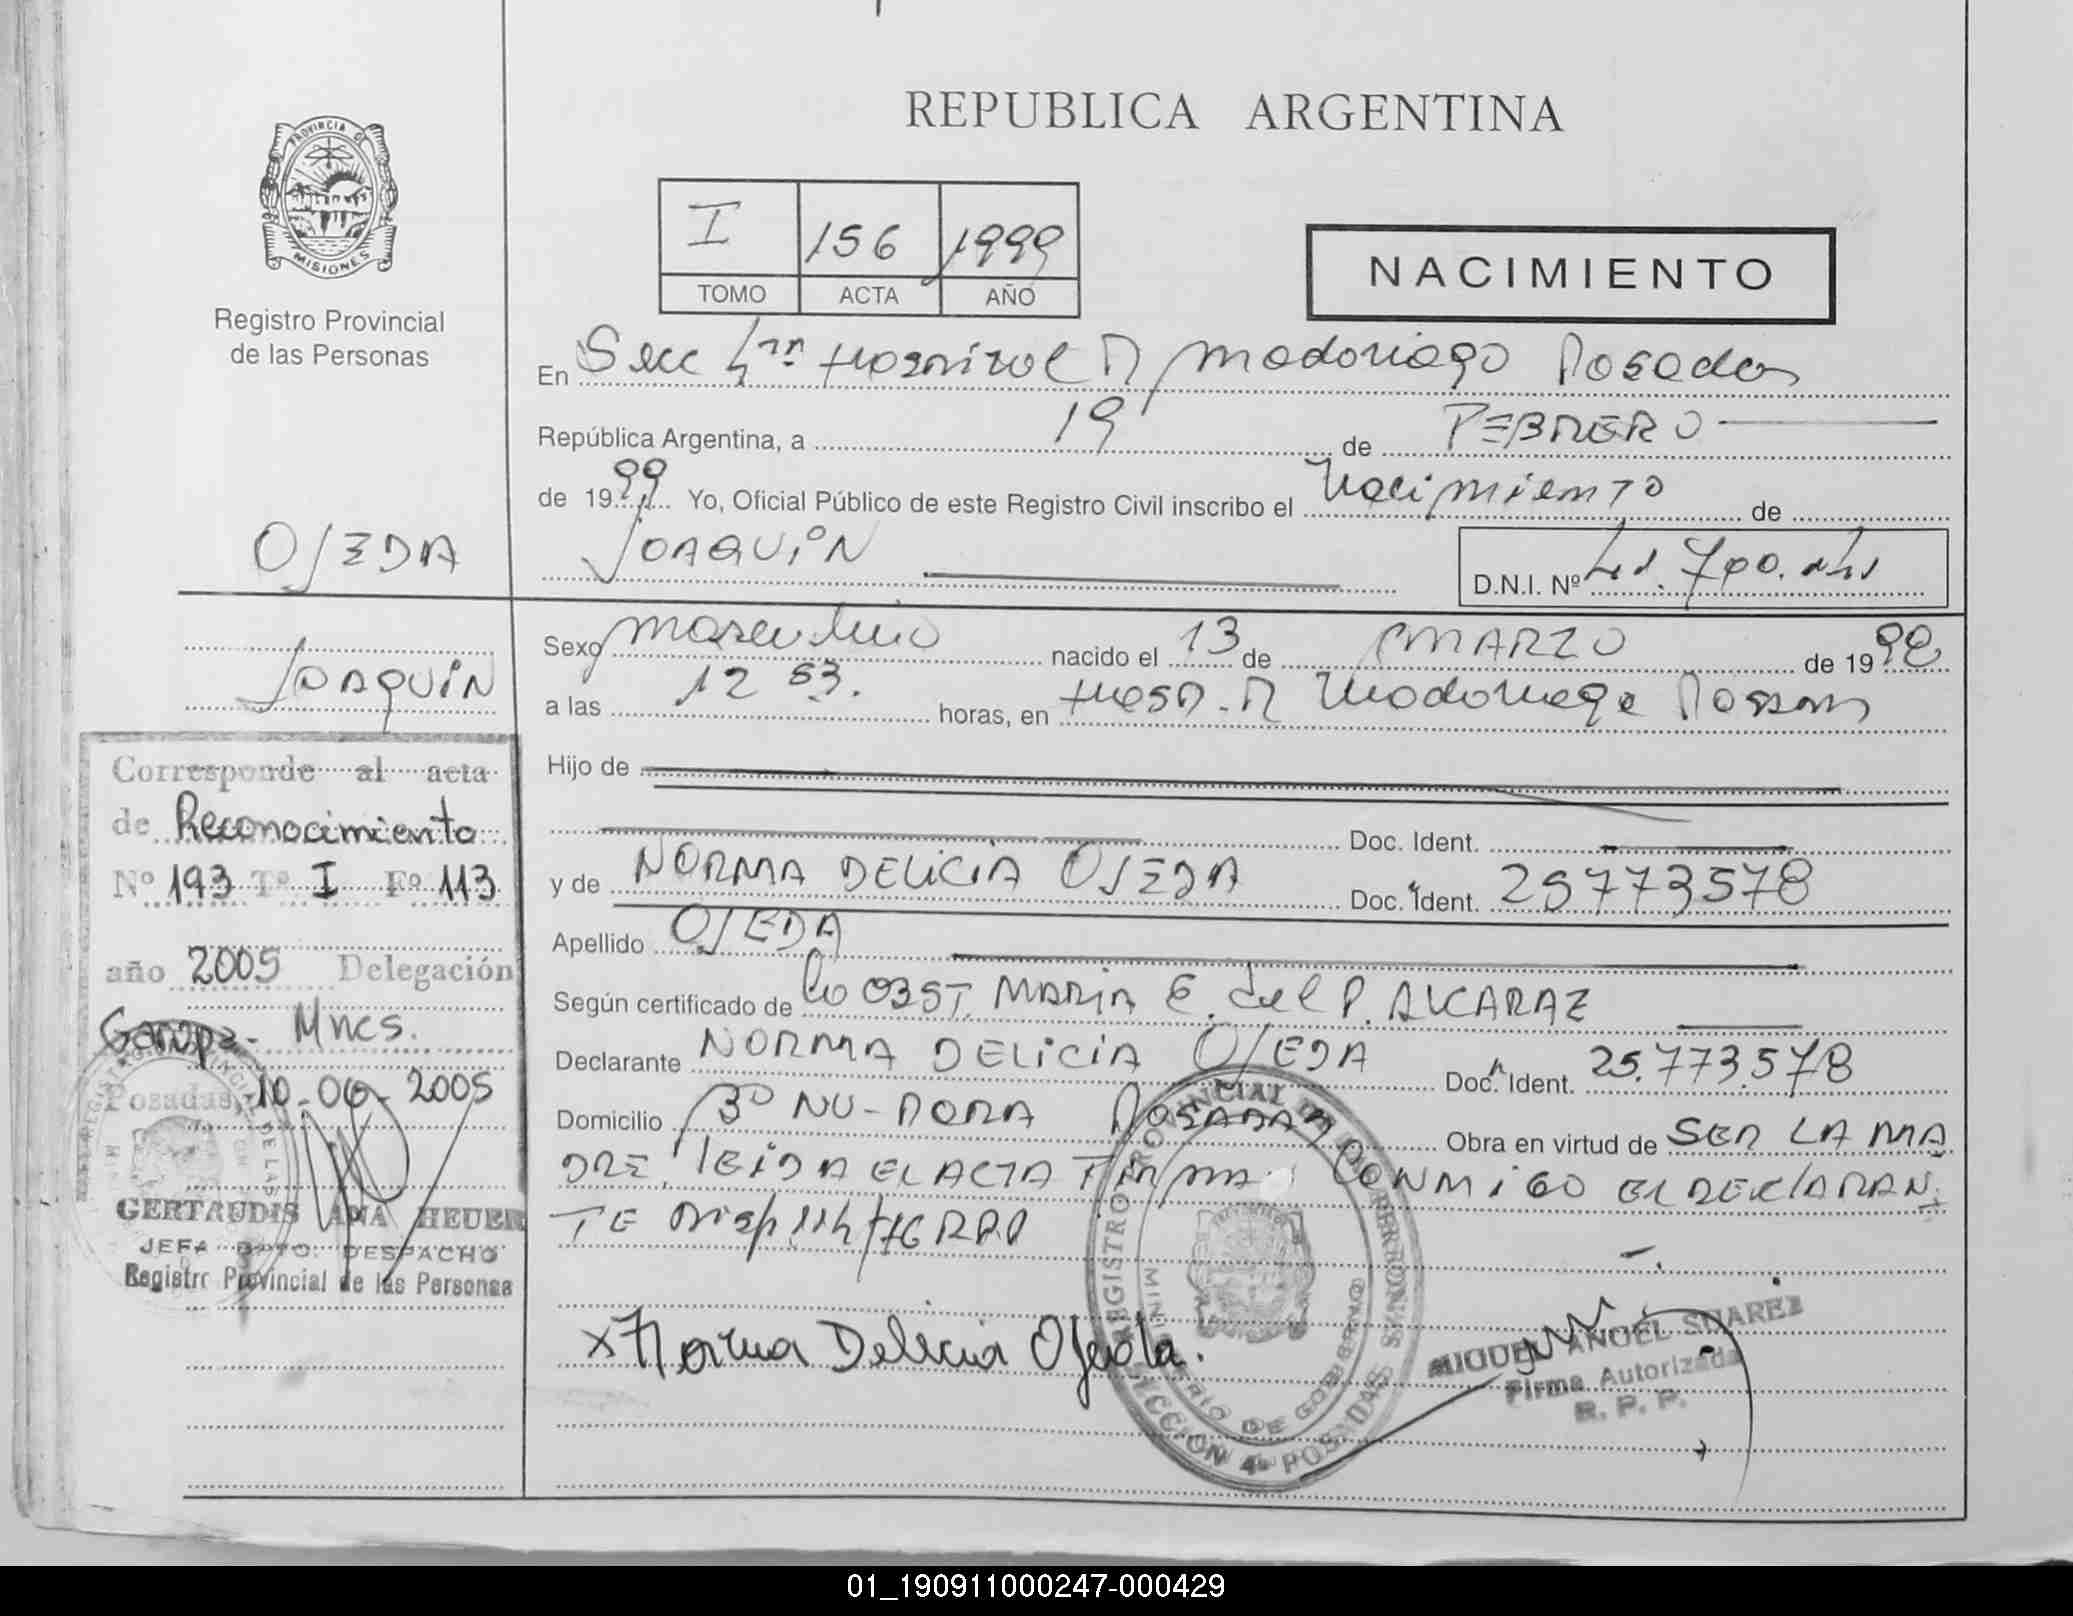 REPUBLICA ARGENTINA
PROVINCIA DE
MISIONES
Registro Provincial
de las Personas
I 156 1999
TOMO ACTA AÑO
NACIMIENTO
En Secc 4ta Hospital R Madariaga Posadas
República Argentina, a 19 de FEBRERO
de 1999 Yo, Oficial Público de este Registro Civil inscribo el Nacimiento de
JOAQUIN
D.N.I. Nº
OJEDA
JOAQUIN
Sexo masculino nacido el 13 de MARZO de 19
a las 12 53. horas, en Hosp. R Madariaga
Hijo de
Doc. Ident.
y de NORMA DELICIA OJEDA Doc. Ident. 25773578
Apellido OJEDA
Según certificado de la OBST. MARIA E. del P. ALCARAZ
Declarante NORMA DELICIA OJEDA Doc. Ident. 25.773.578
Domicilio Bº NU-PORA POSADAS Obra en virtud de SER LA MA
DRE, LEIDA EL ACTA FIRMA CONMIGO EL DECLARAN
TE
x Norma Delicia Ojeda.
REGISTRO PROVINCIAL DE LAS PERSONAS
MINISTERIO DE GOBIERNO
SECCION 4ª POSADAS
MIGUEL ANGEL SUAREZ
Firma Autorizada
R. P. P.
Corresponde al acta
de Reconocimiento
Nº 193 Tº I Fº 113
año 2005 Delegación
Garupa - Mnes.
Posadas, 10-06-2005
GERTRUDIS ANA HEUER
JEFA DPTO. DESPACHO
Registro Provincial de las Personas
01_190911000247-000429